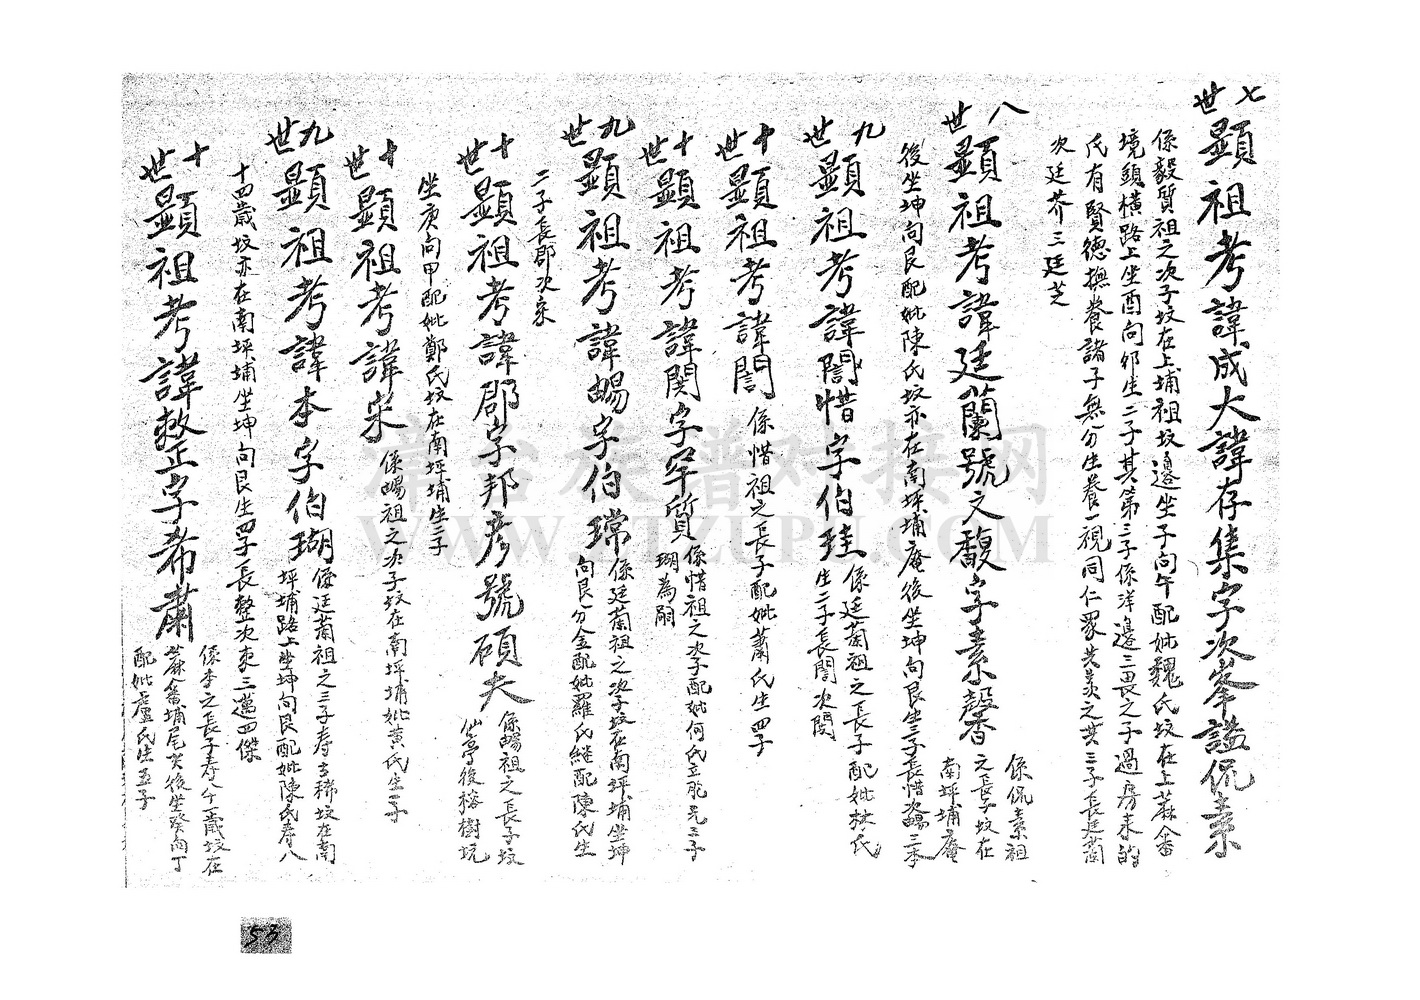 七世顯祖考諱成大諱存集字次峯謚侃素
係毅質祖之次子坟在上埔祖坟邊坐子向午配妣魏氏坟在上蔴畲
境頭橫路上坐酉向卯生二子其第三子係洋邊三畏之子過房来的
氏有賢德撫養諸子無分生養一視同仁眾共羨之共三子長廷蘭
次廷芥三廷芝
八世顯祖考諱廷蘭號文馥字素馨
係侃素祖
之長子坟在
南坪埔庵
後坐坤向艮配妣陳氏坟亦在南坪埔庵後坐坤向艮生三子長惜次暘三本
九世顯祖考諱惜字伯珪
係廷蘭祖之長子配妣林氏
生二子長誾次関
十世顯祖考諱誾
係惜祖之長子配妣蕭氏生四子
十世顯祖考諱関字罕質
係惜祖之次子配妣何氏立胞兄三子
瑚為嗣
九世顯祖考諱暘字伯瑺
係廷蘭祖之次子坟在南坪埔坐坤
向艮分金配妣羅氏継配陳氏生
二子長郡次宋
十世顯祖考諱郡字邦彦號碩夫
係暘祖之長子坟
亭後榕樹坑
坐庚向甲配妣鄭氏坟在南坪埔生三子
十世顯祖考諱宋
係暘祖之次子坟在南坪埔妣黄氏生一子
九世顯祖考諱本字伯瑚
係廷蘭祖之三子壽古稀坟在南
坪埔路上坐坤向艮配妣陳氏壽八
十四歲坟亦在南坪埔坐坤向艮生四子長整次柬三邁四傑
十世顯祖考諱整字希肅
係本之長子壽八十歲坟在
蔴畲埔尾後坐癸向丁
配妣盧氏生五子
常台族谱对接网
WWW.CTZUPU.COM
53